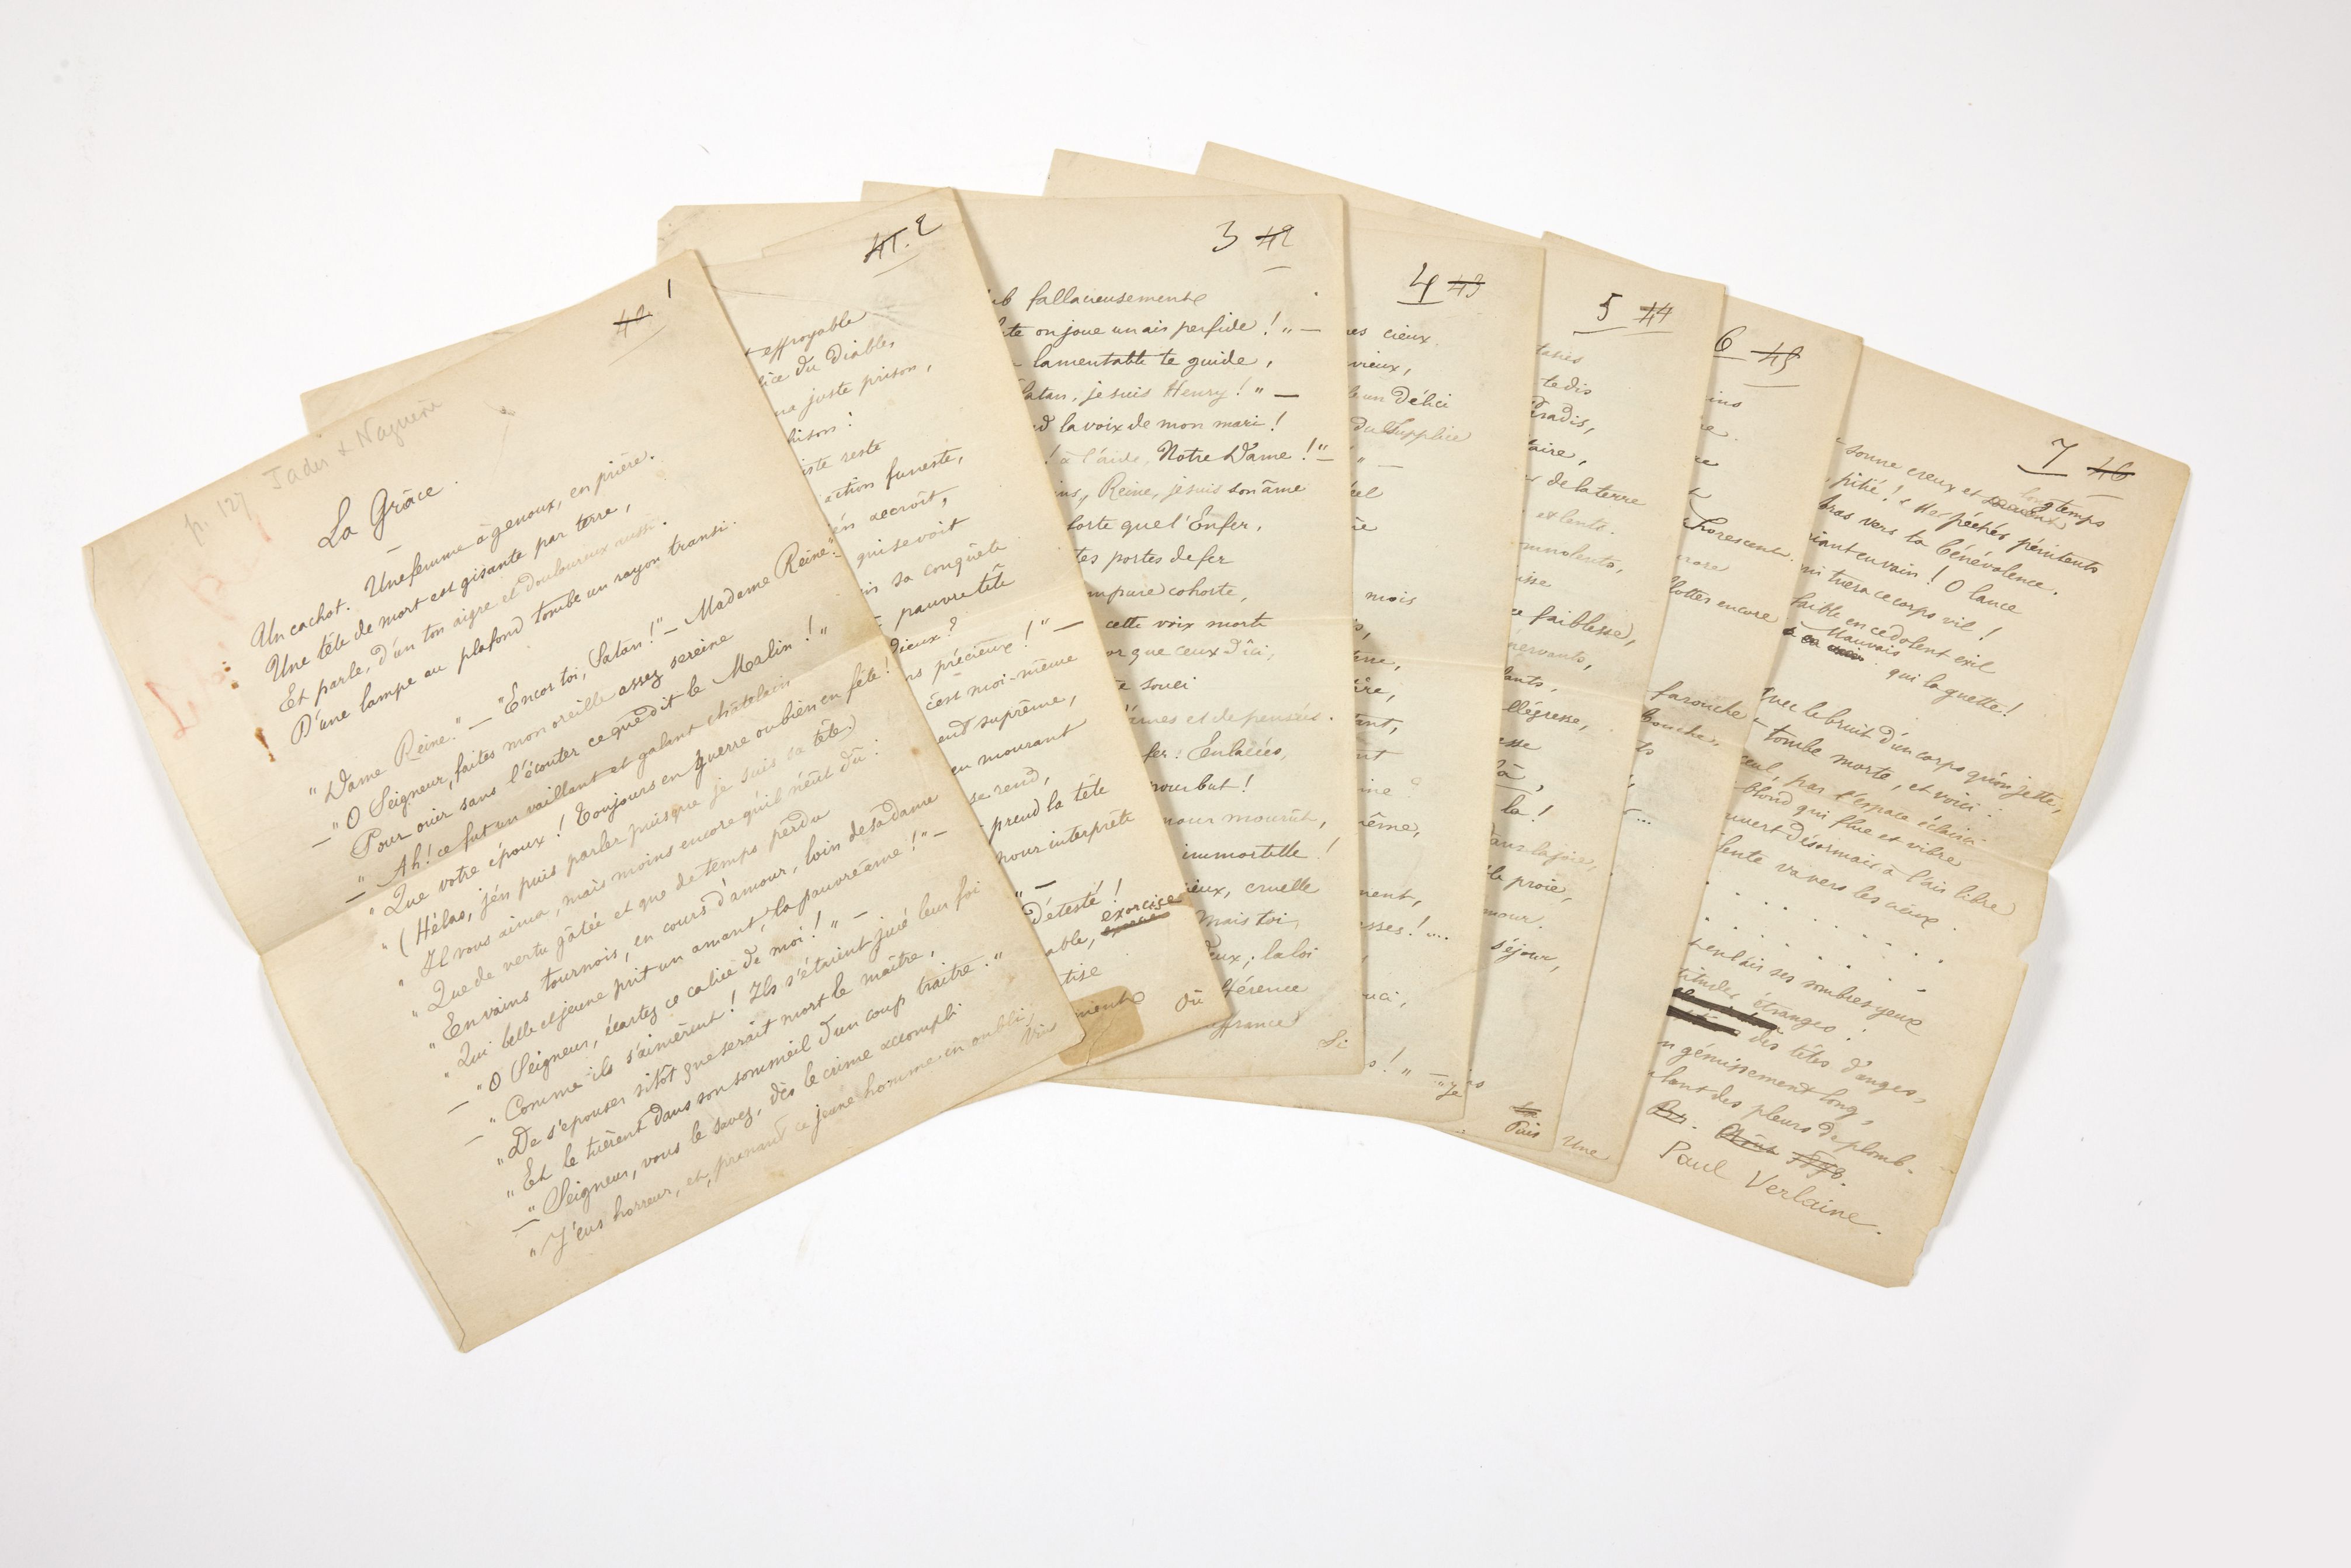 p. 127 Jadis & Naguère
1
La Grâce.
Un cachot. Une femme à genoux, en prière.
Une tête de mort est gisante par terre,
Et parle, d'un ton aigre et douloureux aussi.
D'une lampe au plafond tombe un rayon transi.
"Dame Reine." — "Encor toi, Satan!" — Madame Reine."
— "O Seigneur, faites mon oreille assez sereine
Pour ouïr sans l'écouter ce que dit le Malin!"
— "Ah! ce fut un vaillant et galant châtelain
"Que votre époux! Toujours en guerre ou bien en fête!
"(Hélas, j'en puis parler puisque je suis sa tête.)
"Il vous aima, mais moins encore qu'il n'eût dû:
"Que de vertu gâtée et que de temps perdu
"En vains tournois, en cours d'amour, loin de sa dame
"Qui belle et jeune prit un amant, la pauvre âme!" —
— "O Seigneur, écartez ce calice de moi!" —
— "Comme ils s'aimèrent! Ils s'étaient juré leur foi
"De s'épouser sitôt que serait mort le maître,
"Et le tuèrent dans son sommeil d'un coup traître."
— "Seigneur, vous le savez, dès le crime accompli
"J'eus horreur, et, prenant ce jeune homme en oubli,
Vins
41. 2
effroyable
ice du Diable,
ne juste prison,
hison:
iste reste
action funeste,
en accroît,
qui se voit
sa conquête
pauvre tête
dieux?
ns précieux!" —
c'est moi-même
end suprême,
en mourant
se rend,
prend la tête
pour interprète
" —
Détesté!
able, exorcise
tise
mente
Où
3 42
fallacieusement
te on joue un air perfide!" —
lamentable te guide,
Satan, je suis Henry!" —
d la voix de mon mari!
! à l'aide, Notre Dame!" —
ns, Reine, je suis son âme
forte que l'Enfer.
tes portes de fer
mpure cohorte,
cette voix morte
or que ceux d'ici,
e souci
èmes et de pensées.
fer: Enlacées,
pour but!
pour mourût,
immortelle!
ieux, cruelle
Mais toi,
eux; la loi
férence
ffrance
Si
4 43
es cieux.
vieux,
e un délici
du Supplice
" —
iel
mois
erre,
tant,
nt
ine?
ême,
ment,
sses!....
uci,
s!" — "Je
5 44
te dis
radis,
aire,
de la terre
et lents.
omnolents,
isse
ce faiblesse,
nervants,
lants,
llégresse,
esse
là,
la!
dans la joie,
la proie,
mour.
séjour,
Puis
6 45
ins
re.
horescente.
rore
flottes encore
farouche
bouche,
...
Une
7 46
sonne creux et longtemps
pitié! Mes péchés pénitents
bras vers ta bénévolence.
riant en vain! O lance
ui tuera ce corps vil!
faible en ce dolent exil
Mauvais qui la guette!
Avec le bruit d'un corps qu'on jette,
tombe morte, et voici:
eul, par l'espace éclairci
blond qui flue et vibre
uvert désormais à l'air libre
lente va vers les cieux.
. . . . . . . .
. . . . . . .
endait ses sombres yeux
titudes étranges:
des têtes d'anges,
n gémissement long,
lant des pleurs de plomb.
Paul Verlaine.